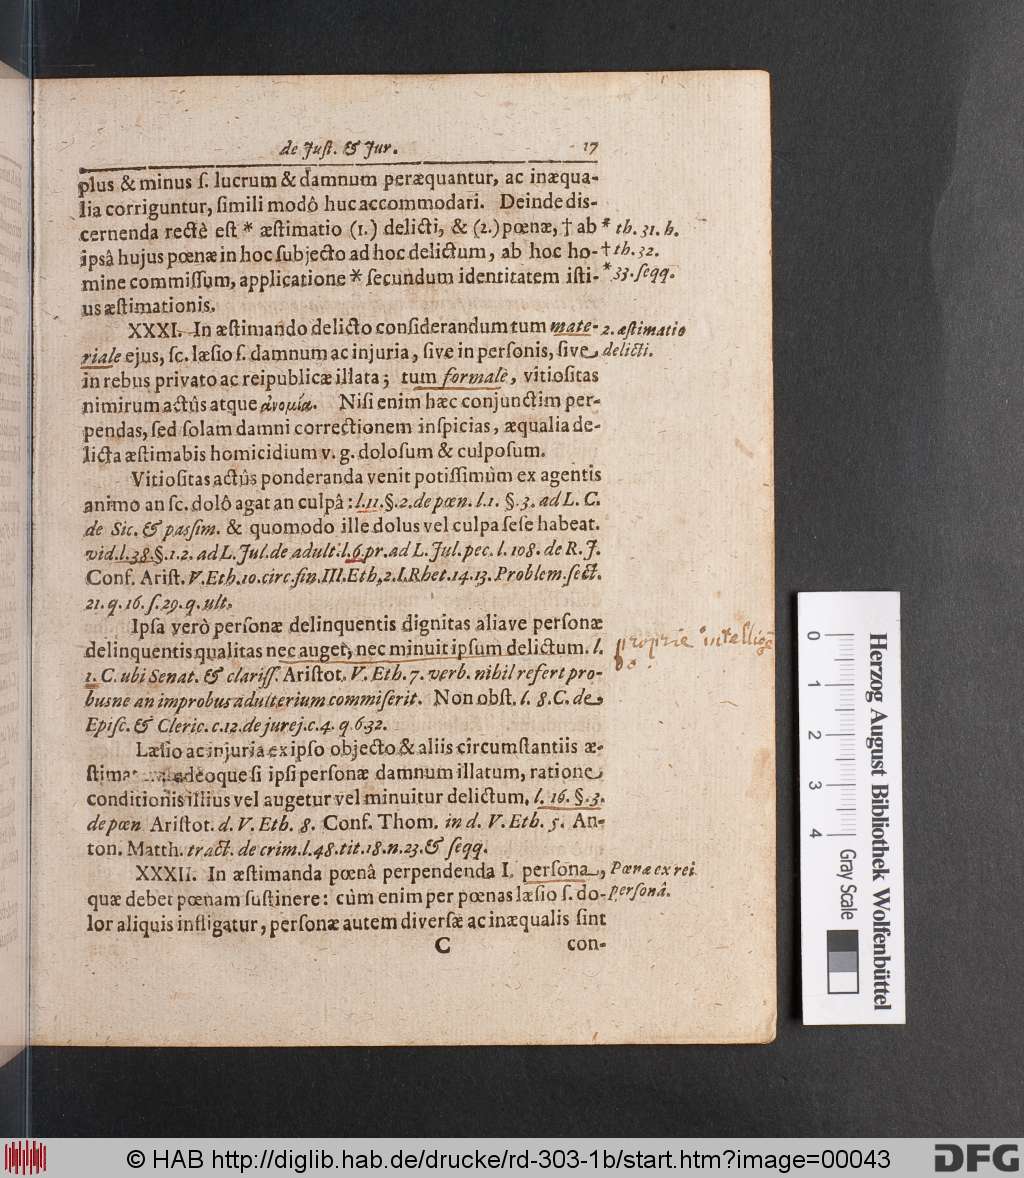 de Juſt. & Jur. 17
plus & minus ſ. lucrum & damnum peræquantur, ac inæqua-
lia corriguntur, ſimili modô huc accommodari. Deinde dis-
cernenda rectè eſt * æſtimatio (1.) delicti, & (2.) pœnæ, † ab
* th. 31. h.
ipsâ hujus pœnæ in hoc ſubjecto ad hoc delictum, ab hoc ho-
† th. 32.
mine commiſſum, applicatione * ſecundum identitatem iſti-
* 33. ſeqq.
us æſtimationis.
XXXI. In æſtimando delicto conſiderandum tum mate-
2. æſtimatio
riale ejus, ſc. læſio ſ. damnum ac injuria, ſive in perſonis, ſive
delicti.
in rebus privato ac reipublicæ illata; tum formale, vitioſitas
nimirum actûs atque ἀνομία. Niſi enim hæc conjunctim per-
pendas, ſed ſolam damni correctionem inſpicias, æqualia de-
licta æſtimabis homicidium v. g. doloſum & culpoſum.
Vitioſitas actûs ponderanda venit potiſſimùm ex agentis
animo an ſc. dolô agat an culpâ: l. 11. §. 2. de pœn. l. 1. §. 3. ad L. C.
de Sic. & paſſim. & quomodo ille dolus vel culpa ſeſe habeat.
vid. l. 38. §. 1. 2. ad L. Jul. de adult. l. 6. pr. ad L. Jul. pec. l. 108. de R. J.
Conf. Ariſt. V. Eth. 10. circ. fin. III. Eth. 2. I. Rhet. 14. 13. Problem. ſect.
21. q. 16. ſ. 29. q. ult.
Ipſa verò perſonæ delinquentis dignitas aliave perſonæ
delinquentis qualitas nec auget, nec minuit ipſum delictum. l.
proprie intellige
1. C. ubi Senat. & clariſſ. Ariſtot. V. Eth. 7. verb. nihil refert pro-
busne an improbus adulterium commiſerit. Non obſt. l. 8. C. de
Epiſc. & Cleric. c. 12. de jurej. c. 4. q. 6 32.
Læſio ac injuria ex ipſo objecto & aliis circumſtantiis æ-
ſtima adeoque ſi ipſi perſonæ damnum illatum, ratione
conditionis illius vel augetur vel minuitur delictum, l. 16. §. 3.
de pœn Ariſtot. d. V. Eth. 8. Conf. Thom. in d. V. Eth. 5. An-
ton. Matth. tract. de crim. l. 48. tit. 18. n. 23. & ſeqq.
XXXII. In æſtimanda pœnâ perpendenda I. perſona,
Pœnæ ex rei
quæ debet pœnam ſuſtinere: cùm enim per pœnas læſio ſ. do-
perſonâ.
lor aliquis infligatur, perſonæ autem diverſæ ac inæqualis ſint
C con-
0 1 2 3 4 Gray Scale
Herzog August Bibliothek Wolfenbüttel
© HAB http://diglib.hab.de/drucke/rd-303-1b/start.htm?image=00043
DFG